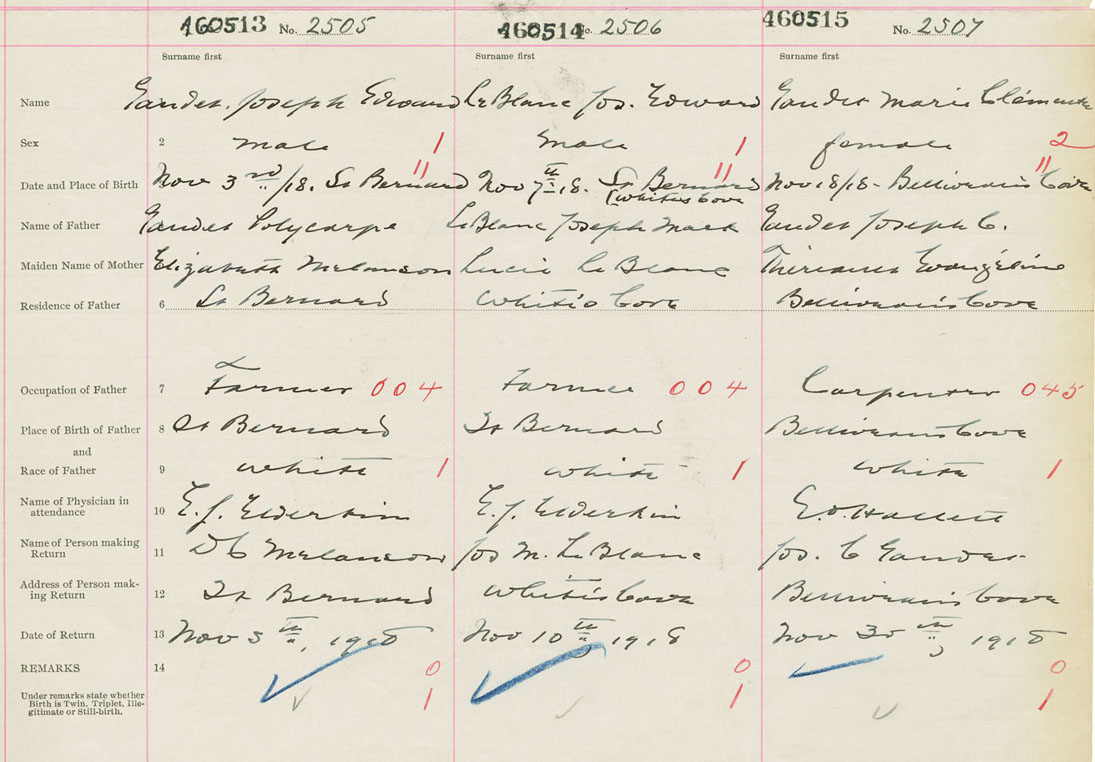 460513 No. 2505 460514 No. 2506 460515 No. 2507
Surname first Surname first Surname first
Name Gaudet. Joseph Edward LeBlanc Jos. Edward Gaudet Marie Clémence
Sex 2 male 1 male 1 female 2
11 11 11
Date and Place of Birth Nov 3rd/18. St Bernard Nov 7th 18. St Bernard Nov 18/18 - Belliveau's Cove
(White's Cove
Name of Father Gaudet Polycarpe LeBlanc Joseph Mark Gaudet Joseph C.
Maiden Name of Mother Elizabeth Melanson Lucie LeBlanc Theriault Evangéline
Residence of Father 6 St Bernard White's Cove Belliveau's Cove
Occupation of Father 7 Farmer 004 Farmer 004 Carpenter 045
Place of Birth of Father 8 St Bernard St Bernard Belliveau's Cove
and
Race of Father 9 white 1 white 1 white 1
Name of Physician in
attendance 10 E. J. Elderkin E. J. Elderkin E. O. Hallett
Name of Person making
Return 11 D C Melanson Jos M. LeBlanc Jos. C Gaudet
Address of Person mak-
ing Return 12 St Bernard White's Cove Belliveau's Cove
Date of Return 13 Nov 5th, 1918 Nov 10th, 1918 Nov 30th, 1918
REMARKS 14 0 0 0
Under remarks state whether
Birth is Twin, Triplet, Ille-
gitimate or Still-birth. 1 1 1